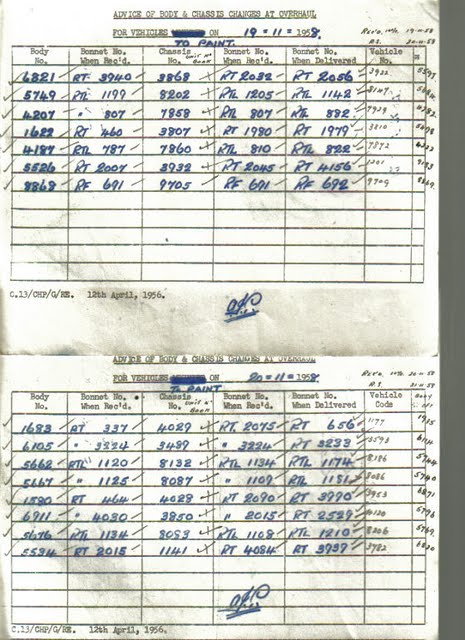 ADVICE OF BODY & CHASSIS CHANGES AT OVERHAUL
FOR VEHICLES ON 19=11=1958. Rec'd. 19-11-58
TO PAINT.
Body No. Bonnet No. When Rec'd. Chassis No. Bonnet No. When Rec'd. Bonnet No. When Delivered Vehicle No.
6821 RT 3940 3868 RT 2032 RT 2056 3922
5749 RTL 1199 8202 RTL 1205 RTL 1142
4207 " 807 7858 RTL 807 RTL 882 7929
1622 RT 460 3807 RT 1980 RT 1979 3810
4187 RTL 787 7860 RTL 810 RTL 822 7872
5526 RT 2007 3932 RT 2045 RT 4156 1201
8868 RF 691 9705 RF 691 RF 692 9709
C.13/CHP/G/RE. 12th April, 1956.
ADVICE OF BODY & CHASSIS CHANGES AT OVERHAUL
FOR VEHICLES ON 20=11=1958. Rec'd. 20-11-58
TO PAINT
Body No. Bonnet No. When Rec'd. Chassis No. Bonnet No. When Rec'd. Bonnet No. When Delivered Vehicle Code
1683 RT 337 4029 RT 2075 RT 656 1177
6105 " 3224 3489 " 3224 RT 3233 3593
5662 RTL 1120 8132 RTL 1134 RTL 1174 8186
5667 " 1125 8087 " 1109 RTL 1181 8086
1580 RT 464 4028 RT 2090 RT 3990 3953
6911 " 4030 3850 " 2015 RT 2529 4120
5676 RTL 1134 8053 RTL 1108 RTL 1210 8206
5534 RT 2015 1141 RT 4084 RT 3937 3782
C.13/CHP/G/RE. 12th April, 1956.